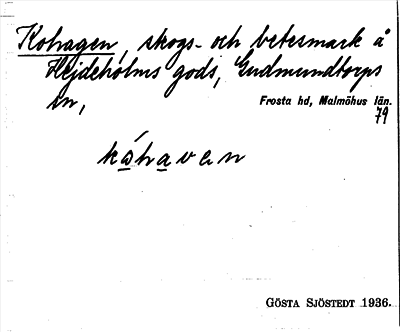 Kohagen, skogs- och betesmark å
Hejdeholms gods, Gudmundtorps
sn,
Frosta hd, Malmöhus län.
79
kåhaven
GÖSTA SJÖSTEDT 1936.